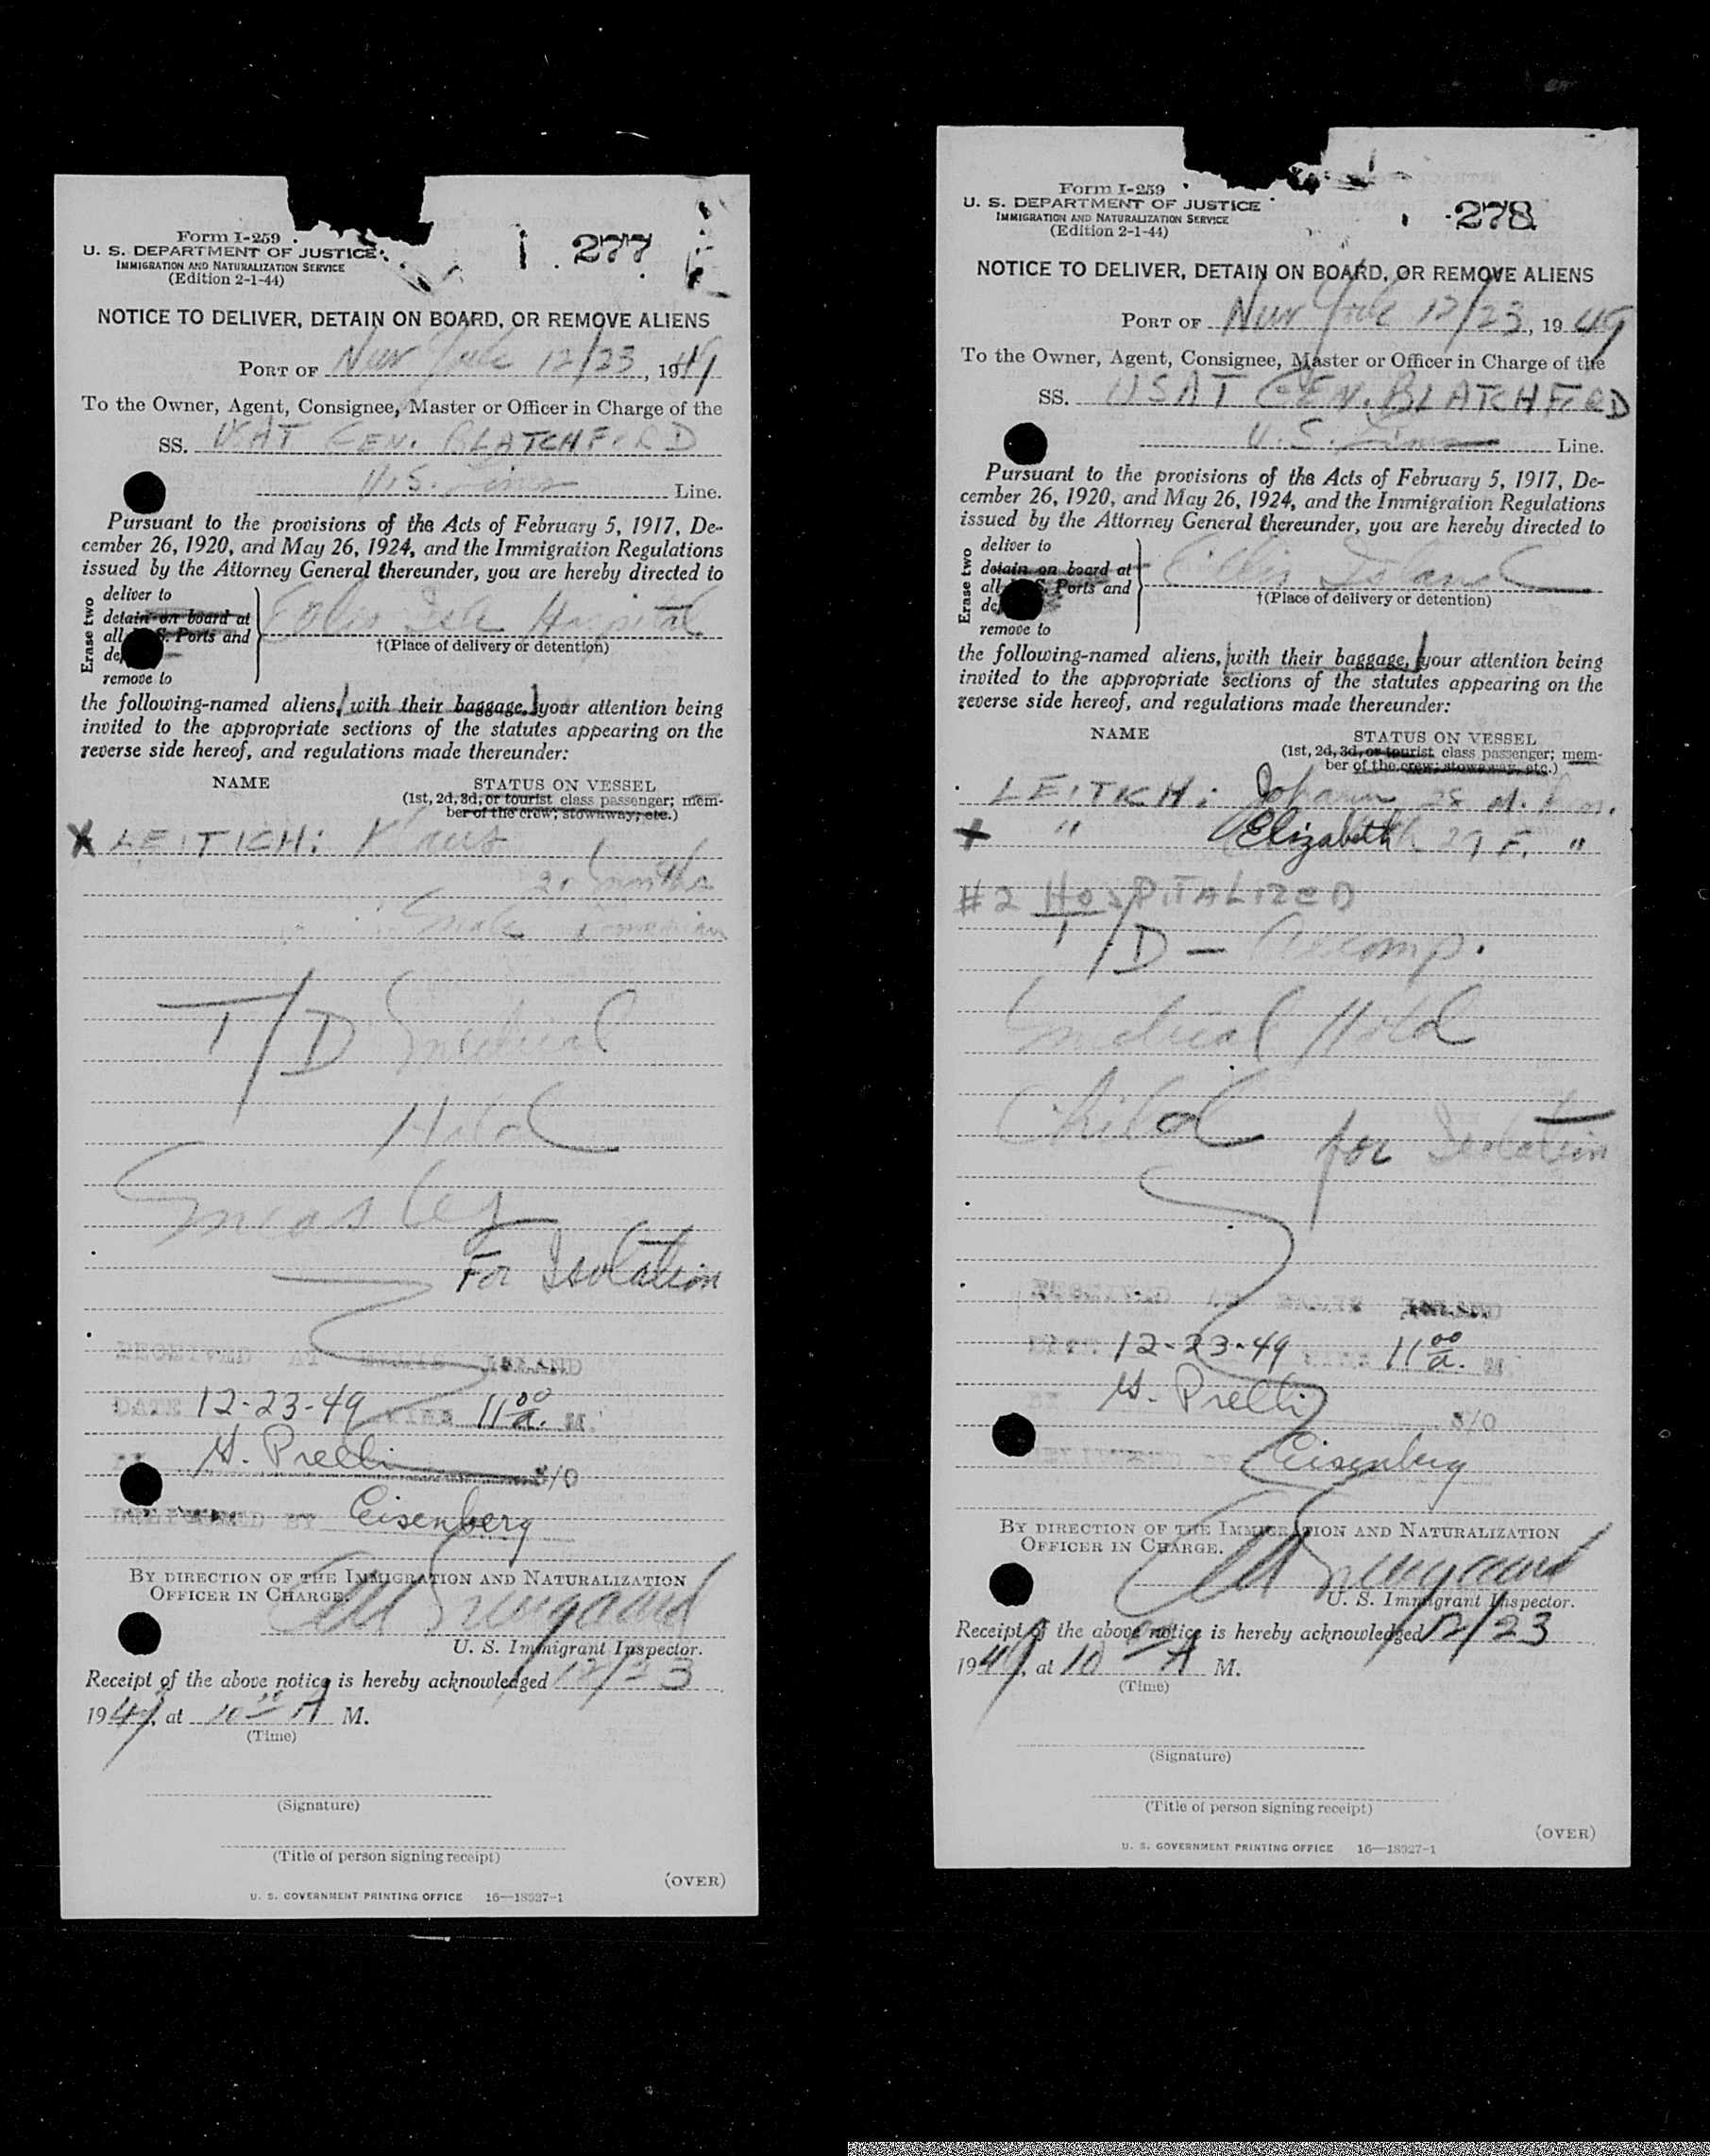 Form I-259
U. S. DEPARTMENT OF JUSTICE
IMMIGRATION AND NATURALIZATION SERVICE
(Edition 2-1-44)
277
NOTICE TO DELIVER, DETAIN ON BOARD, OR REMOVE ALIENS
PORT OF New York 12/23, 1949
To the Owner, Agent, Consignee, Master or Officer in Charge of the
SS. USAT GEN. BLATCHFORD
U.S. Lines Line.
Pursuant to the provisions of the Acts of February 5, 1917, De-
cember 26, 1920, and May 26, 1924, and the Immigration Regulations
issued by the Attorney General thereunder, you are hereby directed to
Erase two
deliver to
detain on board at
all U. S. Ports and
remove to
Ellis Isle Hospital
†(Place of delivery or detention)
the following-named aliens, with their baggage, your attention being
invited to the appropriate sections of the statutes appearing on the
reverse side hereof, and regulations made thereunder:
NAME
STATUS ON VESSEL
(1st, 2d, 3d, or tourist class passenger; mem-
ber of the crew; stowaway; etc.)
X LEITICH: Klaus
20 months
male
T/D Medical
Hold
Measles
For Isolation
RECEIVED AT ELLIS ISLAND
DATE 12-23-49 TIME 11 00 a. M.
H. Prelli S/O
DELIVERED BY Eisenberg
BY DIRECTION OF THE IMMIGRATION AND NATURALIZATION
OFFICER IN CHARGE.
U. S. Immigrant Inspector.
Receipt of the above notice is hereby acknowledged 12/23
1949, at 10 A M.
(Time)
(Signature)
(Title of person signing receipt)
(OVER)
U. S. GOVERNMENT PRINTING OFFICE 16—18327-1
Form I-259
U. S. DEPARTMENT OF JUSTICE
IMMIGRATION AND NATURALIZATION SERVICE
(Edition 2-1-44)
278
NOTICE TO DELIVER, DETAIN ON BOARD, OR REMOVE ALIENS
PORT OF New York 12/23, 1949
To the Owner, Agent, Consignee, Master or Officer in Charge of the
SS. USAT GEN. BLATCHFORD
U.S. Lines Line.
Pursuant to the provisions of the Acts of February 5, 1917, De-
cember 26, 1920, and May 26, 1924, and the Immigration Regulations
issued by the Attorney General thereunder, you are hereby directed to
Erase two
deliver to
detain on board at
all U. S. Ports and
remove to
Ellis Island
†(Place of delivery or detention)
the following-named aliens, with their baggage, your attention being
invited to the appropriate sections of the statutes appearing on the
reverse side hereof, and regulations made thereunder:
NAME
STATUS ON VESSEL
(1st, 2d, 3d, or tourist class passenger; mem-
ber of the crew; stowaway, etc.)
LEITICH: Johann 28 M.
X " Elizabeth 29 F. "
#2 HOSPITALIZED
T/D — Accomp.
Medical Hold
Child for Isolation
RECEIVED AT ELLIS ISLAND
DATE 12-23-49 TIME 11 00 a. M.
BY H. Prelli S/O
Eisenberg
BY DIRECTION OF THE IMMIGRATION AND NATURALIZATION
OFFICER IN CHARGE.
U. S. Immigrant Inspector.
Receipt of the above notice is hereby acknowledged 12/23
1949, at 10 A M.
(Time)
(Signature)
(Title of person signing receipt)
(OVER)
U. S. GOVERNMENT PRINTING OFFICE 16—18327-1